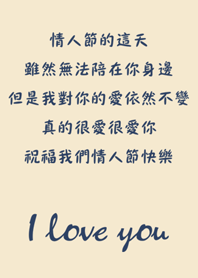 情人節的這天
雖然無法陪在你身邊
但是我對你的愛依然不變
真的很愛很愛你
祝福我們情人節快樂
I love you